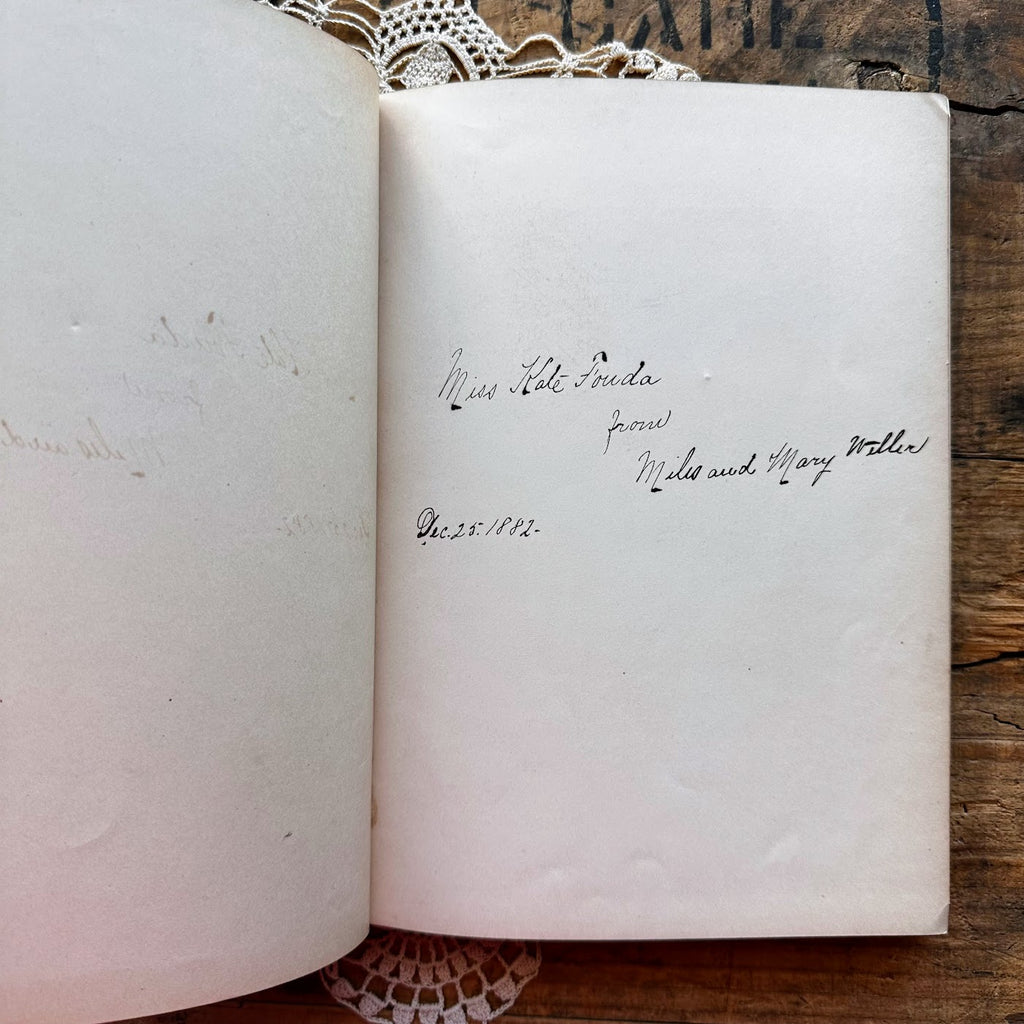 Miss Kate Fonda
from
Miles and Mary Weller
Dec. 25. 1882-